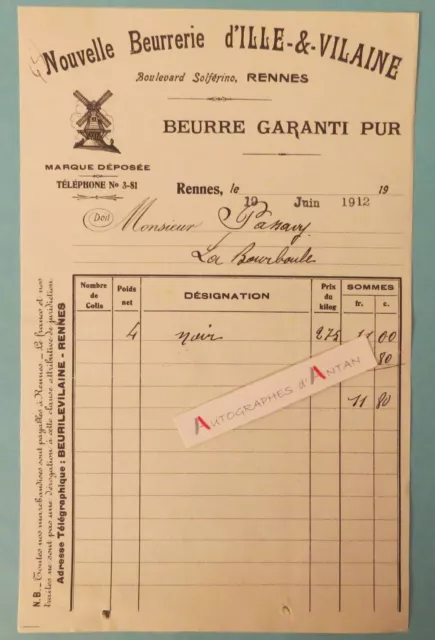 Nouvelle Beurrerie d'ILLE-&-VILAINE
Boulevard Solférino, RENNES
BEURRE GARANTI PUR
MARQUE DÉPOSÉE
TÉLÉPHONE No 3-81
Rennes, le 19 Juin 1912 19
Doit
Monsieur
La Bourboule
Nombre de Colis
Poids net
DÉSIGNATION
Prix du kilog
SOMMES
fr. c.
4 noir 275 11 00
80
11 80
AUTOGRAPHES d'ANTAN
N.B. - Toutes nos marchandises sont payables à Rennes. - Le franco et nos
traites ne sont pas une dérogation à cette clause attributive de juridiction.
Adresse Télégraphique : BEURILEVILAINE - RENNES